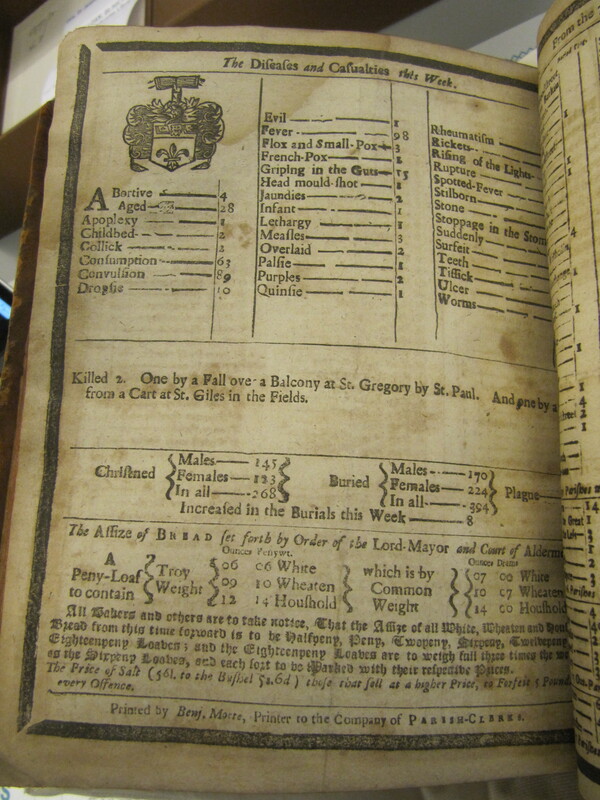 The Diseases and Casualties this Week.
ABortive 4
Aged 28
Apoplexy 1
Childbed 2
Collick 2
Consumption 63
Convulsion 89
Dropsie 10
Evil 1
Fever 98
Flox and Small-Pox 3
French-Pox
Griping in the Guts 15
Head mould-shot 1
Jaundies 2
Infant 1
Lethargy 1
Measles 3
Overlaid 2
Palsie 1
Purples 2
Quinsie 1
Rheumatism
Rickets
Rising of the Lights
Rupture
Spotted-Fever
Stilborn
Stone
Stoppage in the Stom
Suddenly
Surfeit
Teeth
Tissick
Ulcer
Worms
Killed 2. One by a Fall over a Balcony at St. Gregory by St. Paul. And one by a
from a Cart at St. Giles in the Fields.
Christned
Males 145
Females 123
In all 268
Buried
Males 170
Females 224
In all 394
Plague
Increased in the Burials this Week 8
The Assize of BREAD set forth by Order of the Lord-Mayor and Court of Alderm
A
Peny-Loaf
to contain
Troy
Weight
Ounces Penywt.
06 06 White
09 10 Wheaten
12 14 Houshold
which is by
Common
Weight
Ounces Drams
07 00 White
10 07 Wheaten
14 00 Houshold
All Bakers and others are to take notice, That the Assize of all White, Wheaten and Hous
Bread from this time forward is to be Halfpeny, Peny, Twopeny, Sixpeny, Twelvepeny
Eighteenpeny Loaves; and the Eighteenpeny Loaves are to weigh full three times the
as the Sixpeny Loaves, and each sort to be Marked with their respective Prices.
The Price of Salt (56l. to the Bushel 5s.6d) those that sell at a higher Price, to Forfeit 5 Pound
every Offence.
Printed by Benj. Motte, Printer to the Company of PARISH-CLERKS.
From the